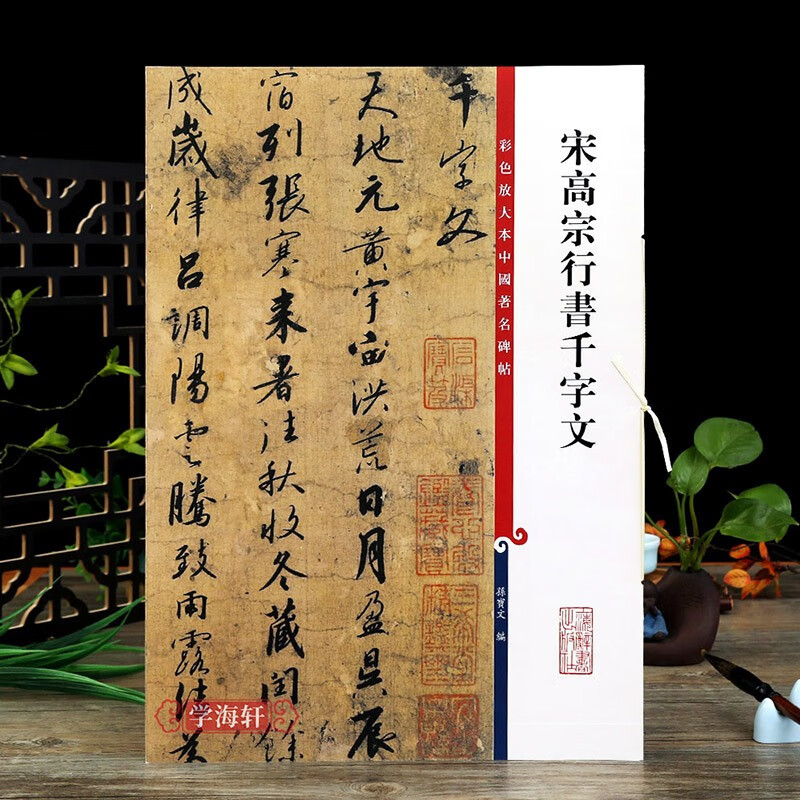 宋高宗行書千字文
彩色放大本中國著名碑帖
孫寶文 編
上海辭書出版社
千字文
天地元黃宇宙洪荒日月盈昃辰
宿列張寒来暑往秋收冬藏閏餘
成歲律呂調陽雲騰致雨露結為
学海轩